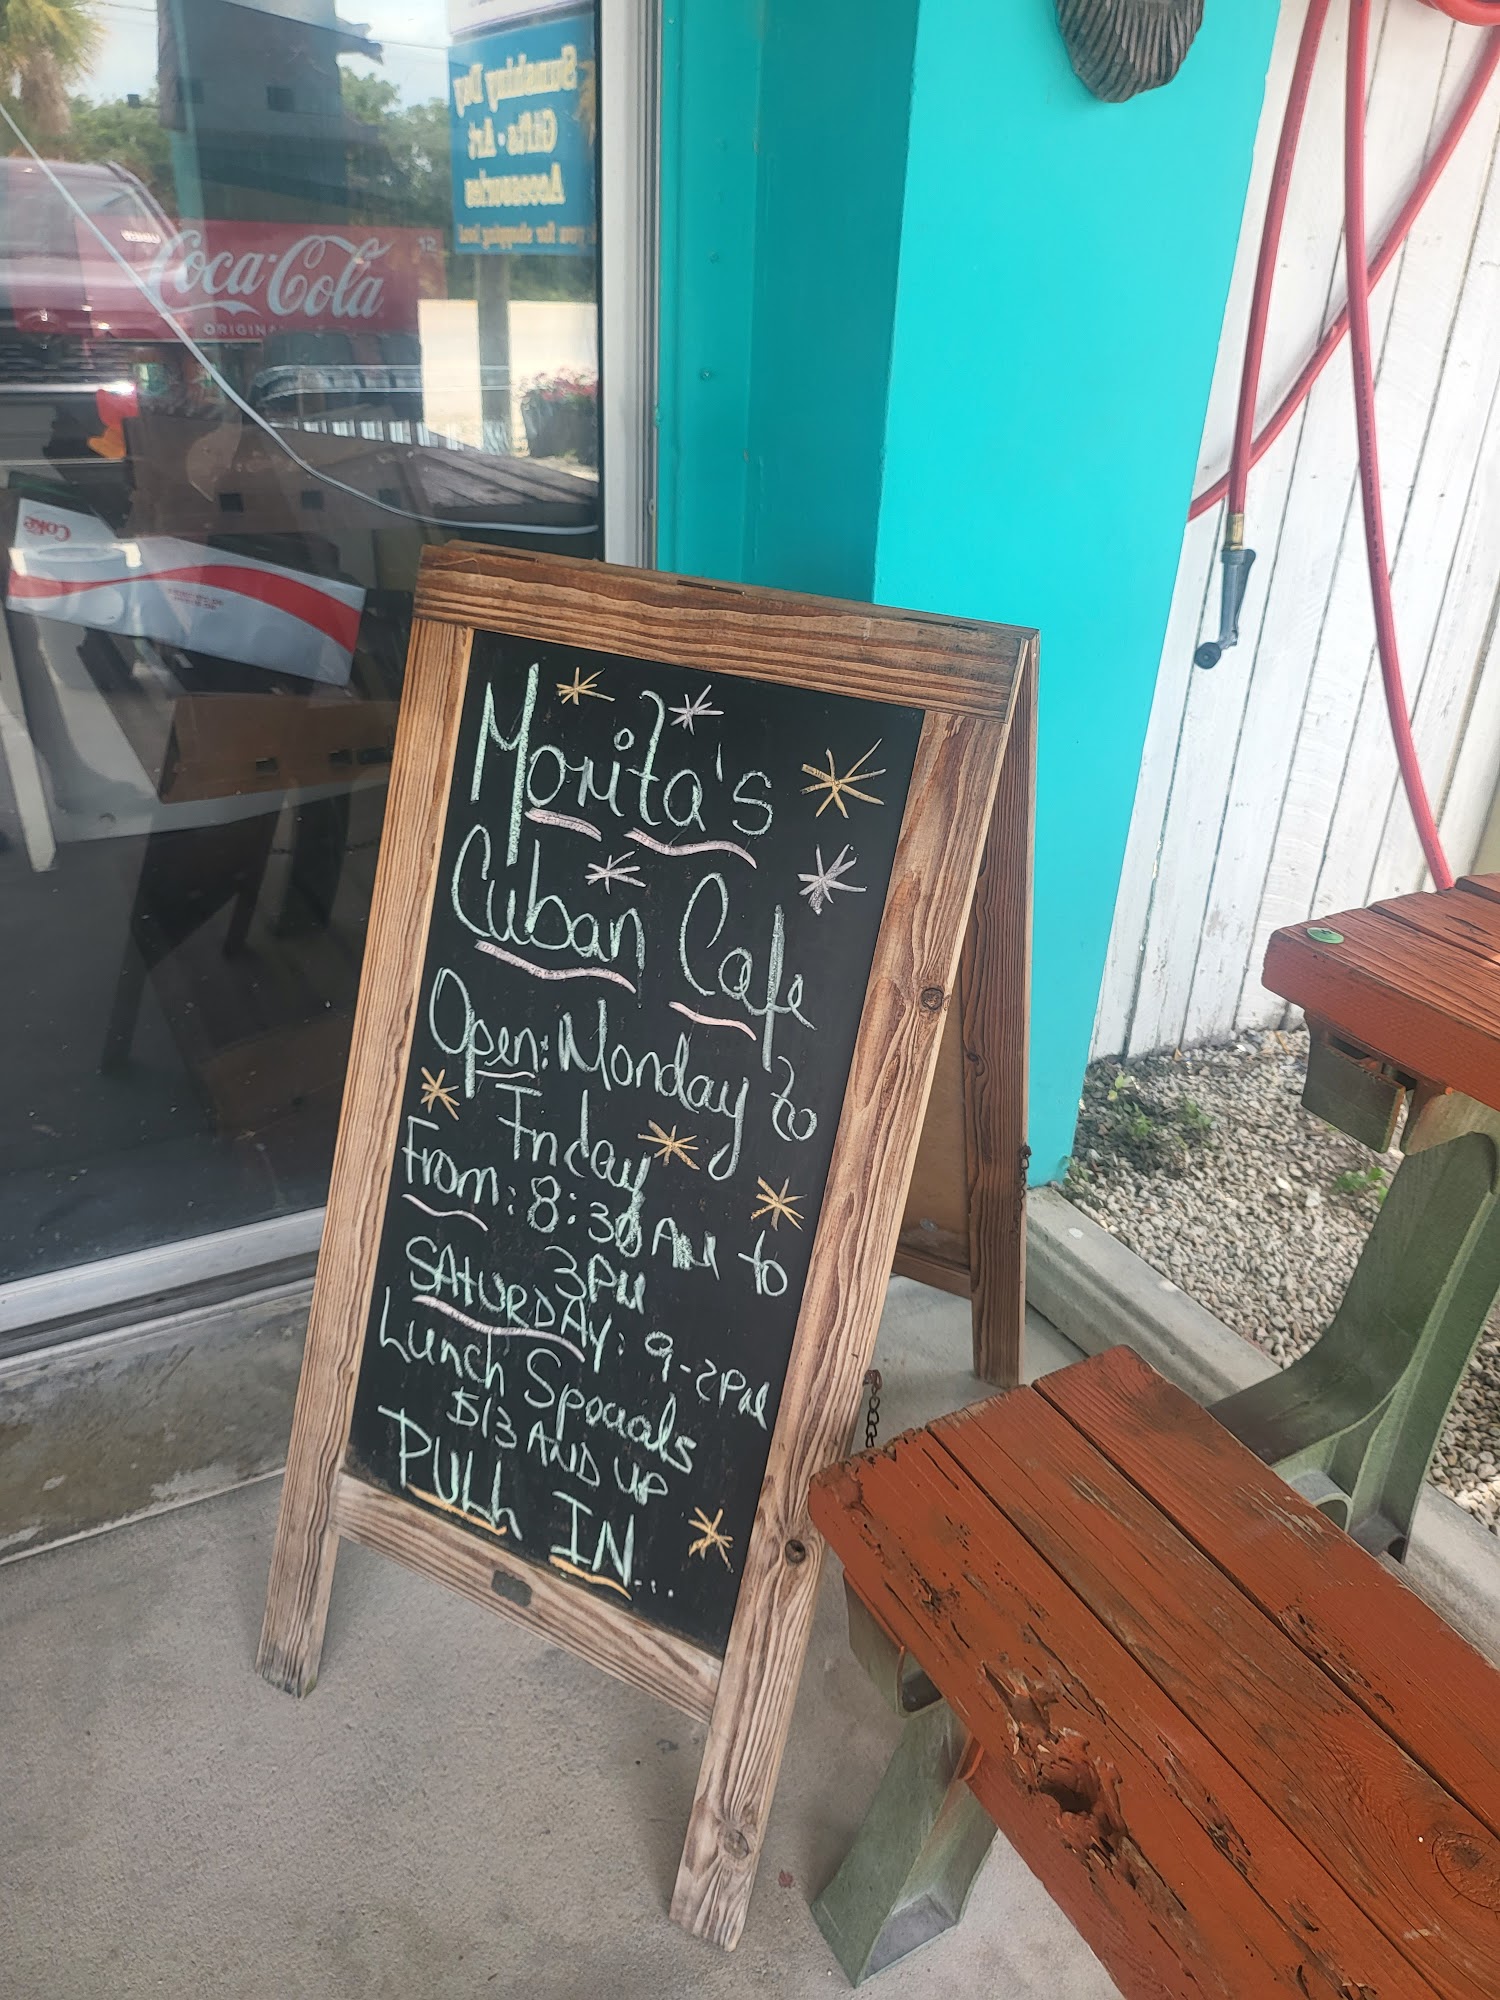 Sunshiny Day
Gifts • Art
Accessories
you for shopping local
Coca-Cola
12
ORIGINAL
Coke
Morita's
Cuban Cafe
Open: Monday to
Friday
From: 8:30 AM to
3PM
SATURDAY: 9-2PM
Lunch Specials
$13 AND UP
PULL IN...